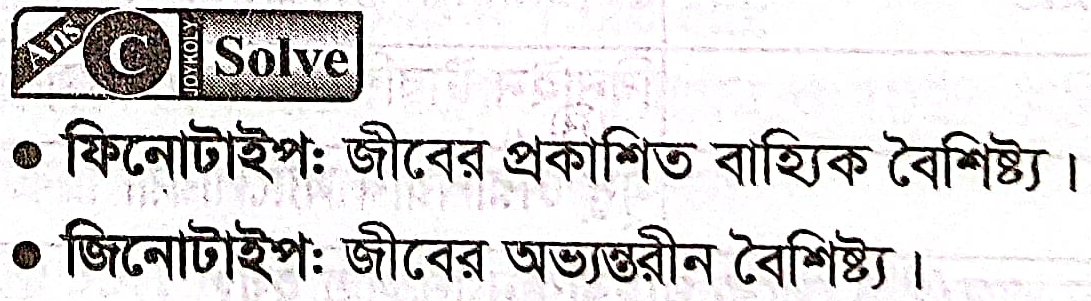 Ans C JOYKOLY Solve
• ফিনোটাইপ: জীবের প্রকাশিত বাহ্যিক বৈশিষ্ট্য।
• জিনোটাইপ: জীবের অভ্যন্তরীন বৈশিষ্ট্য।